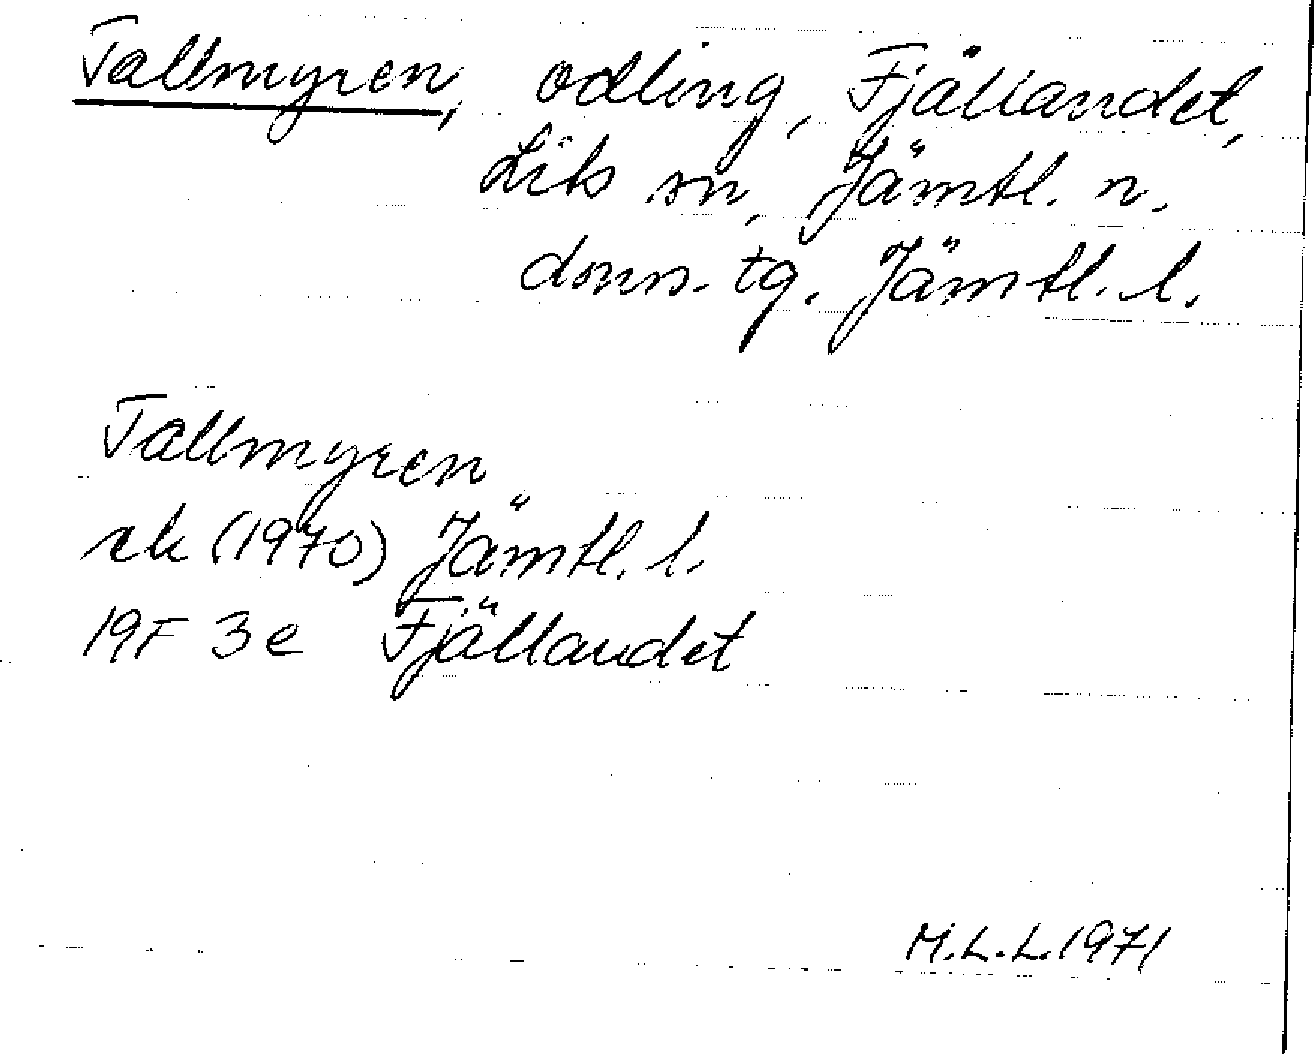 Tallmyren, odling, Fjällandet,
Lits sn, Jämtl. n.
doms. tg. Jämtl. l.
Tallmyren
ek (1970) Jämtl. l.
19F 3e Fjällandet
M.L.L. 1971